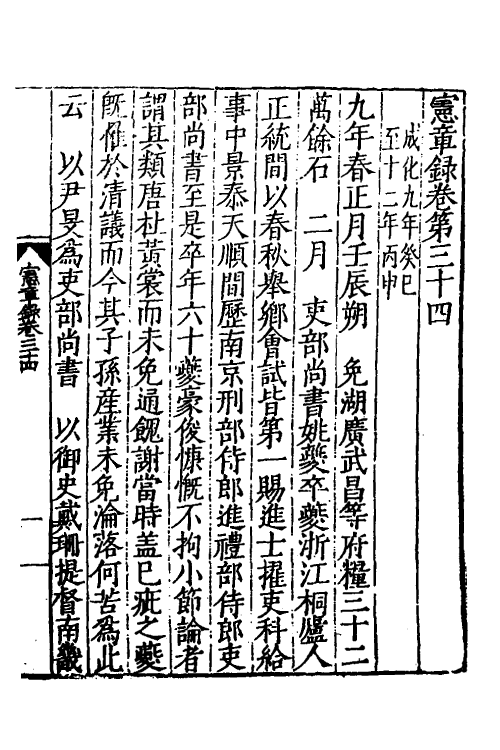 憲章錄卷第三十四
成化九年癸巳
至十二年丙申
九年春正月壬辰朔　免湖廣武昌等府糧三十二
萬餘石　二月　吏部尚書姚夔卒夔浙江桐廬人
正統間以春秋舉鄉會試皆第一賜進士擢吏科給
事中景泰天順間歷南京刑部侍郎進禮部侍郎吏
部尚書至是卒年六十夔豪俊慷慨不拘小節論者
謂其類唐杜黃裳而未免通餽謝當時盖已疵之夔
旣罹於清議而今其子孫産業未免淪落何苦爲此
云　以尹旻爲吏部尚書　以御史戴珊提督南畿
憲章錄卷三十四
一